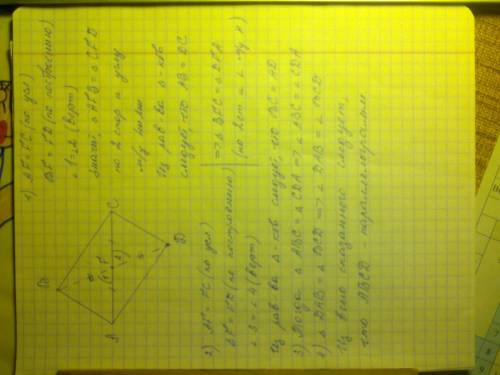 1) AF = FC (по усл)
BF = FD (по построению)
∠1=∠2 (верт)
значит, △AFB = △CFD
по 2 стор и углу
м/у ними
Из рав-ва △-ков
следует, что AB = DC
B
A
C
D
F
1
2
3
4
2) AF = FC (по усл)
BF = FD (по построению)
∠3 = ∠4 (верт)
=> △BFC = △DFA
(по 2 ст и ∠ м/у)
Из рав-ва △-ков следует, что BC = AD
3) Тогда △ABC = △CDA => ∠ABC = ∠CDA
4) △DAB = △BCD => ∠DAB = ∠BCD
Из всего сказанного следует,
что ABCD параллелограмм